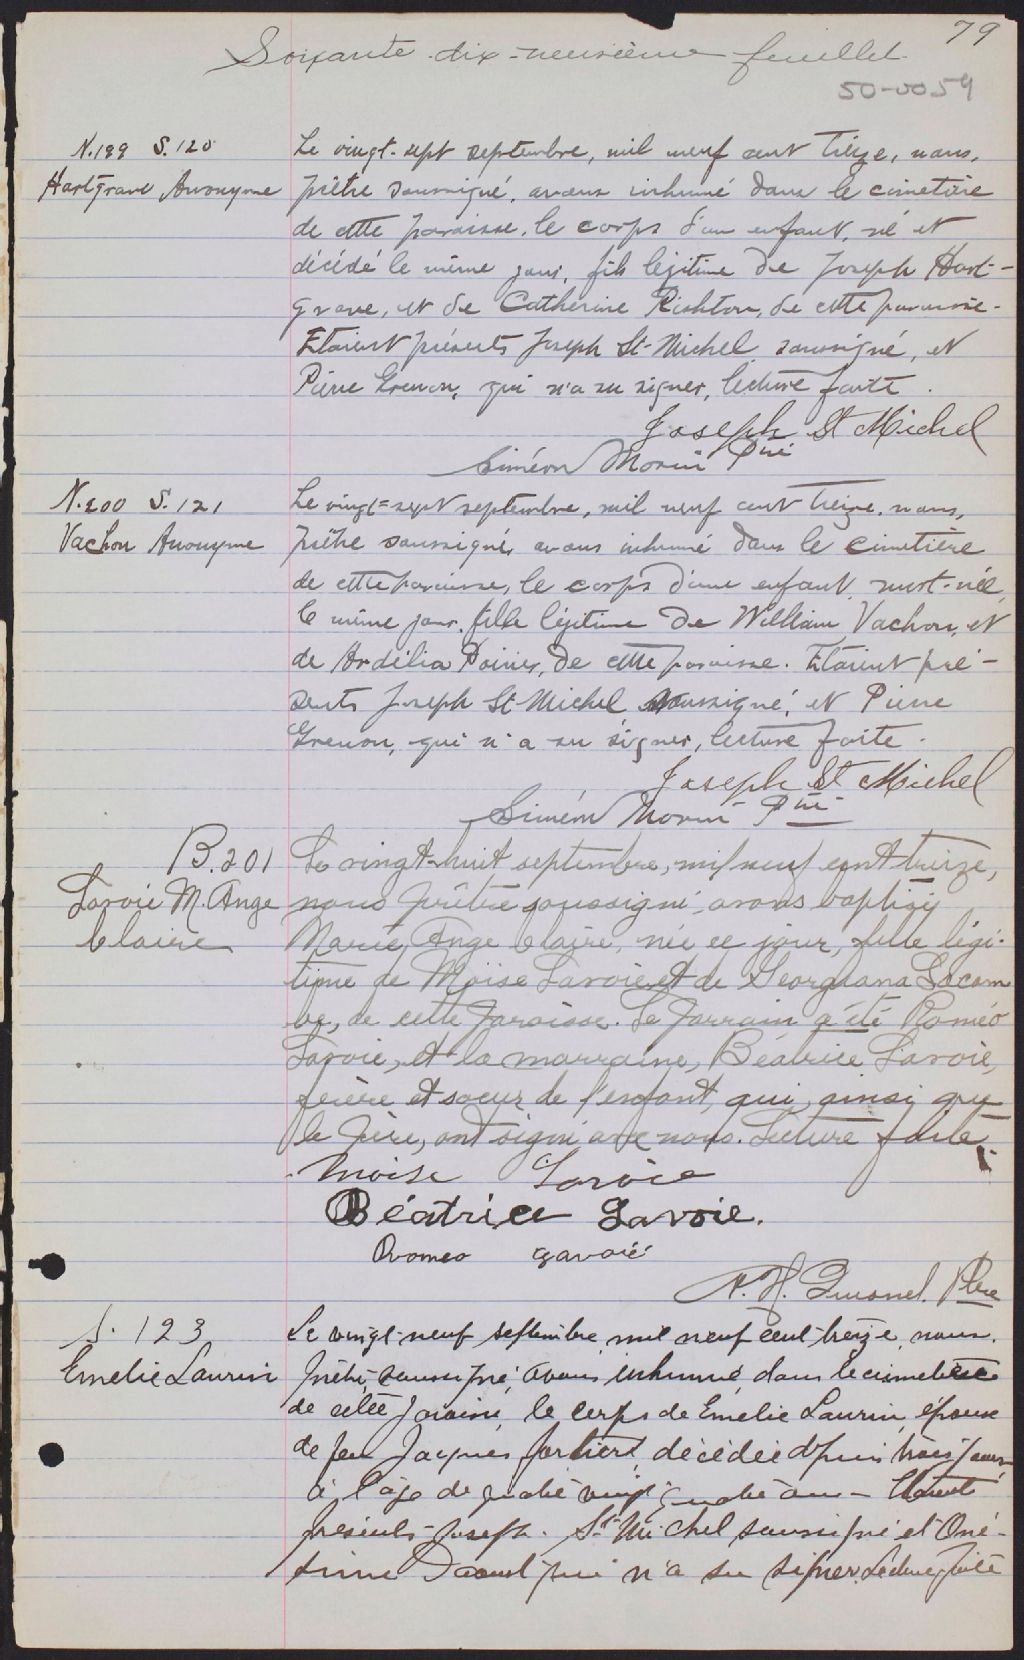 79
Soixante-dix-neuvième feuillet
50-0059
N.199 S.120
Hartgrave Anonyme
Le vingt-sept septembre, mil neuf cent treize, nous,
prêtre soussigné, avons inhumé dans le cimetière
de cette paroisse, le corps d'un enfant, né et
décédé le même jour, fils légitime de Joseph Hart-
grave, et de Catherine Rishton, de cette paroisse.
Etaient présents Joseph St-Michel, soussigné, et
Pierre Grenon, qui n'a su signer, lecture faite.
Joseph St Michel
Siméon Morin Ptre
N.200 S.121
Vachon Anonyme
Le vingt-sept septembre, mil neuf cent treize, nous,
prêtre soussigné, avons inhumé dans le cimetière
de cette paroisse, le corps d'une enfant, mort-née,
le même jour, fille légitime de William Vachon, et
de Ardélia Poirier, de cette paroisse. Etaient pré-
sents Joseph St-Michel soussigné, et Pierre
Grenon, qui n'a su signer, lecture faite.
Joseph St Michel
Siméon Morin Ptre
B.201
Lavoie M. Ange
Claire
Le vingt-huit septembre, mil neuf cent treize,
nous prêtre soussigné, avons baptisé
Marie, Ange Claire, née ce jour, fille légi-
time de Moïse Lavoie et de Georgiana Lacom
be, de cette paroisse. Le parrain a été Roméo
Lavoie, et la marraine, Béatrice Lavoie,
frère et soeur de l'enfant, qui, ainsi que
le père, ont signé avec nous. Lecture faite.
Moise Lavoie
Béatrice Lavoie.
Romeo Lavoie
Ptre
S. 123
Emelie Laurin
Le vingt-neuf septembre mil neuf cent treize, nous,
prêtre, soussigné, avons inhumé, dans le cimetière
de cette paroisse, le corps de Emelie Laurin, épouse
de feu Jacques Fortier, décédée depuis trois jours
à l'âge de quatre vingt quatre ans - Etaient
présents Joseph St Michel soussigné et Oné-
sime Daoust qui n'a su signer. Lecture faite